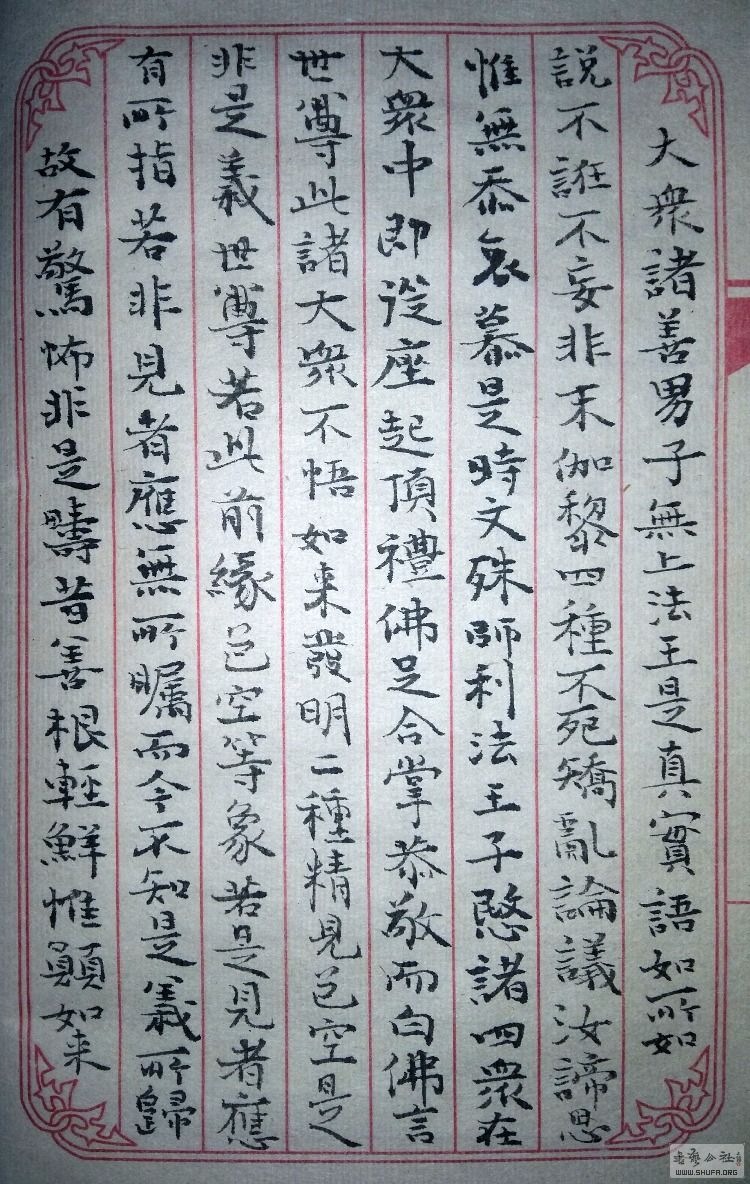 大衆諸善男子無上法王是真實語如所如
說不誑不妄非末伽黎四種不死矯亂論議汝諦思
惟無忝哀慕是時文殊師利法王子愍諸四衆在
大衆中即從座起頂禮佛足合掌恭敬而白佛言
世尊此諸大衆不悟如来發明二種精見色空是
非是義世尊若此前緣色空等象若是見者應
有所指若非見者應無所矚而今不知是義所歸
故有驚怖非是疇昔善根輕鮮惟願如来
書藝公社
WWW.SHUFA.ORG